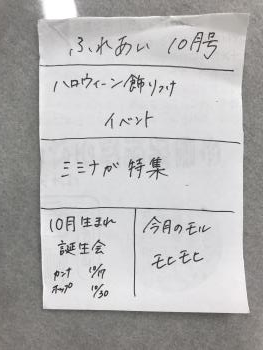 ふれあい 10月号
ハロウィーン飾りつけ
イベント
ミミナガ特集
10月生まれ
誕生会
カンナ 10/17
ホップ 10/30
今月のモル
モヒモヒ